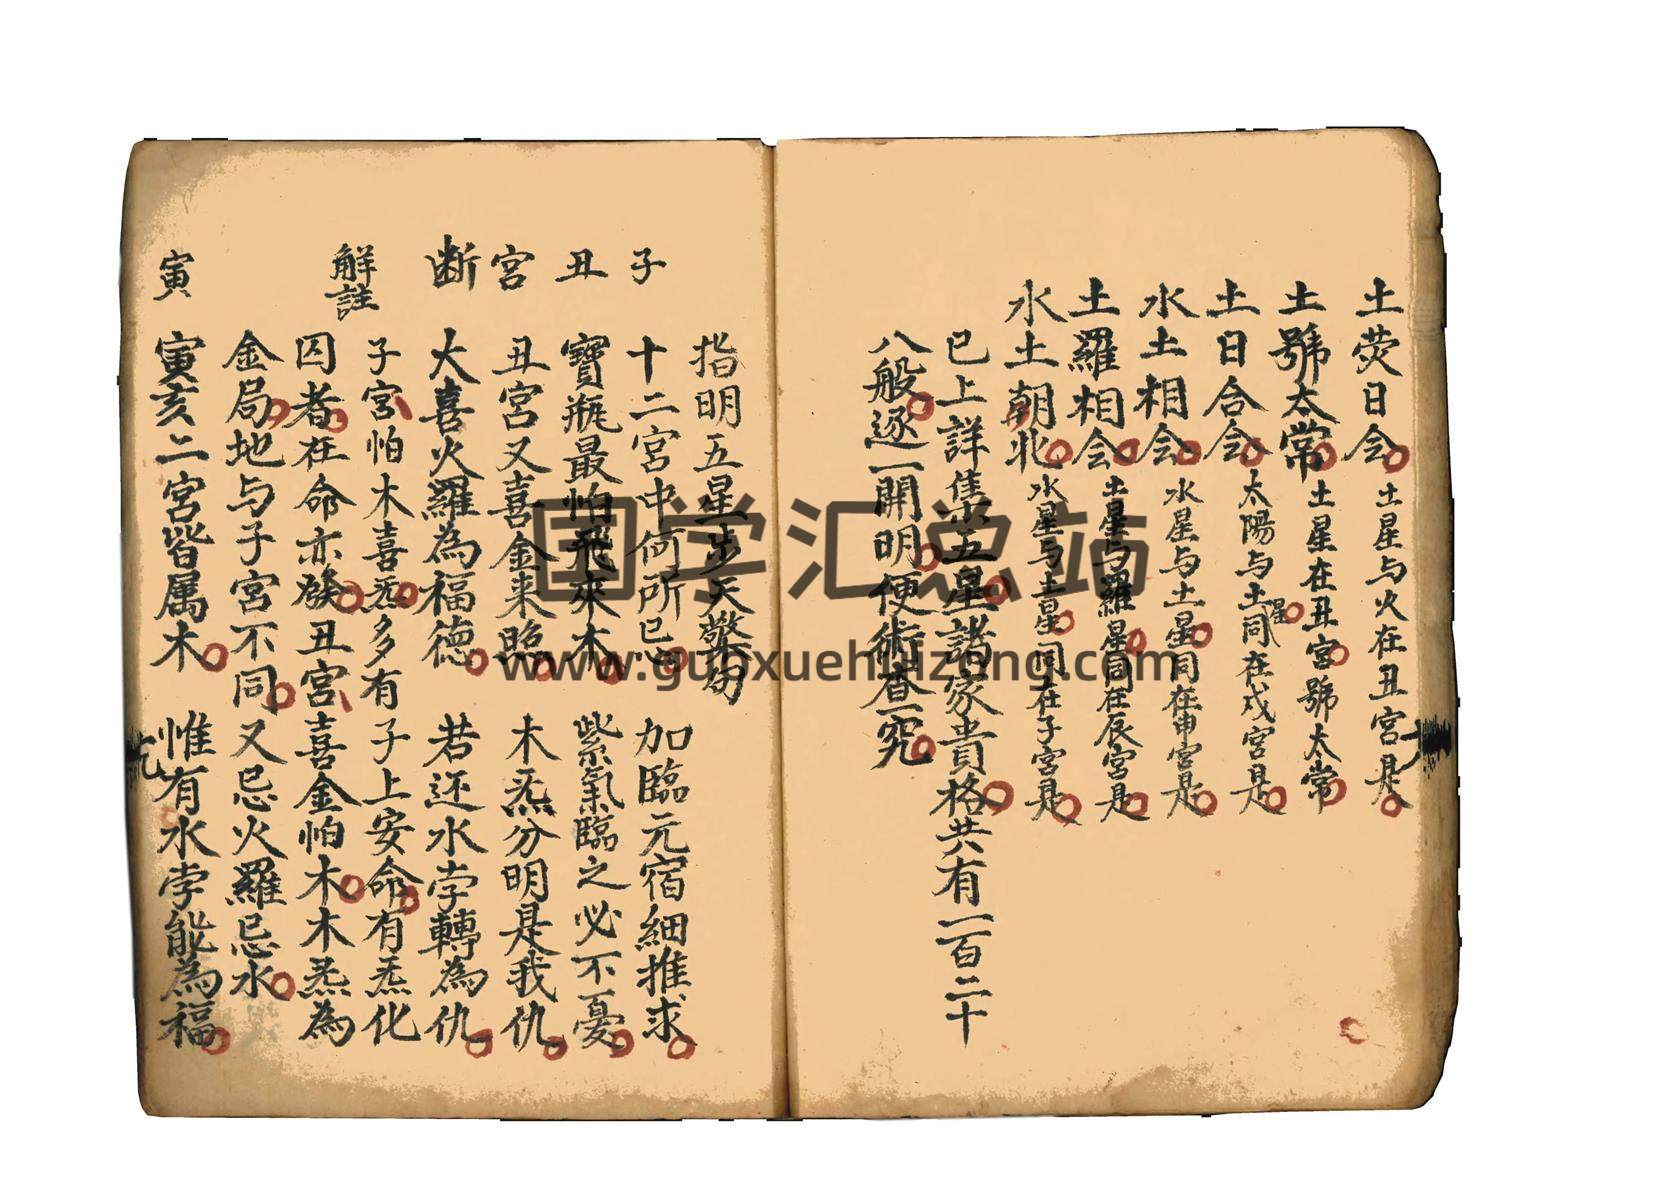 土荧日会 土星与火在丑宮是
土號太常 土星在丑宮號太常
土日合会 太陽与土星同在戌宮是
水土相会 水星与土星同在申宮是
土羅相会 土星与羅星同在辰宮是
水土朝北 水星与土星同在子宮是
已上詳集五星諸家貴格共有一百二十
八般逐一開明便術查一究
指明五星步天警句
子 十二宮中何所忌 加臨元宿細推求
丑 寶瓶最怕飛來木 紫氣臨之必不憂
宮 丑宮又喜金来照 木炁分明是我仇
断 大喜火羅為福德 若还水孛轉為仇
子宮怕木喜炁多有子上安命有炁化
解註 囚者在命亦發丑宮喜金怕木木炁為
金局地与子宮不同又忌火羅忌水
寅 寅亥二宮皆属木 惟有水孛能為福
国学汇总站
www.guoxuehuizong.com